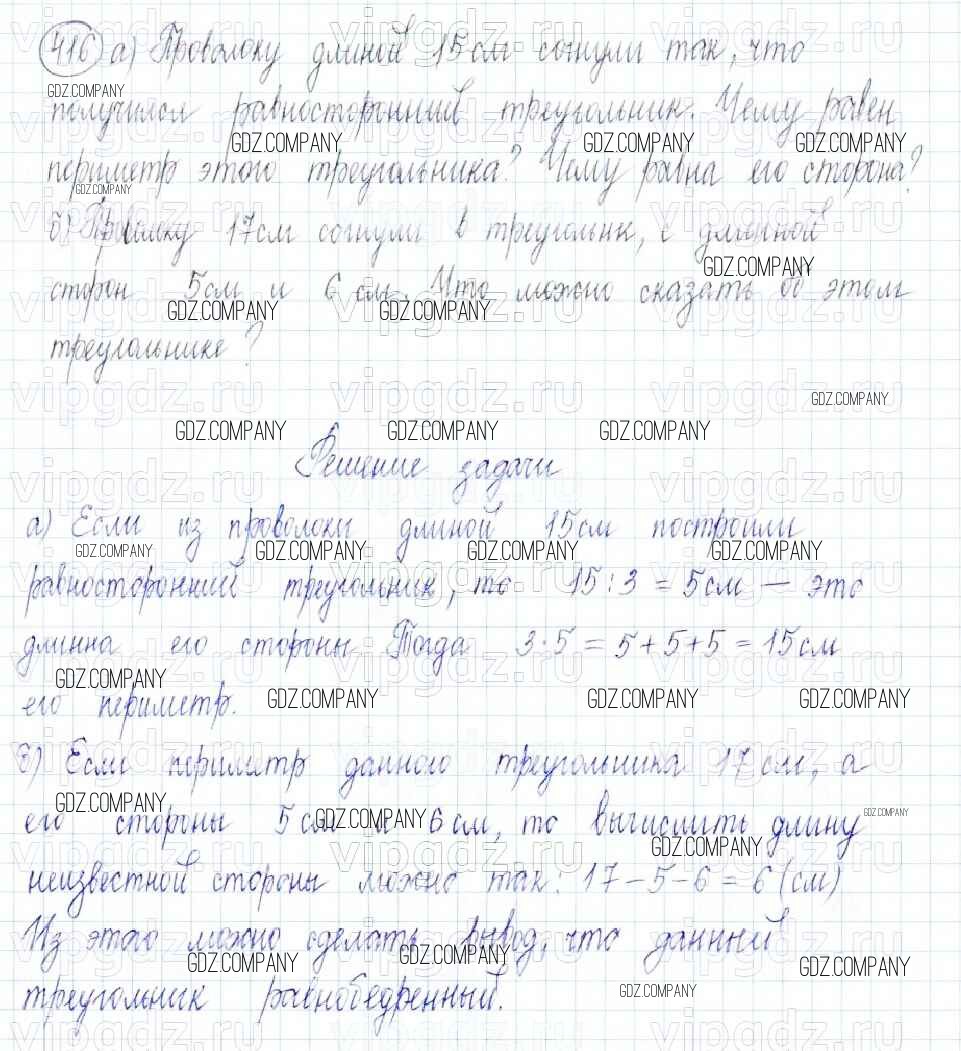 416 а) Проволоку длиной 15 см согнули так, что
получился равносторонний треугольник. Чему равен
периметр этого треугольника? Чему равна его сторона?
б) Проволоку 17 см согнули в треугольник, с длинной
сторон 5 см и 6 см. Что можно сказать об этом
треугольнике?
Решение задачи
а) Если из проволоки длиной 15 см построили
равносторонний треугольник, то 15 : 3 = 5 см — это
длинна его стороны. Тогда 3·5 = 5+5+5 = 15 см
его периметр.
б) Если периметр данного треугольника 17 см, а
его стороны 5 см и 6 см, то вычислить длину
неизвестной стороны можно так: 17 – 5 – 6 = 6 (см)
Из этого можно сделать вывод, что данный
треугольник равнобедренный.
GDZ.COMPANY
vipgdz.ru